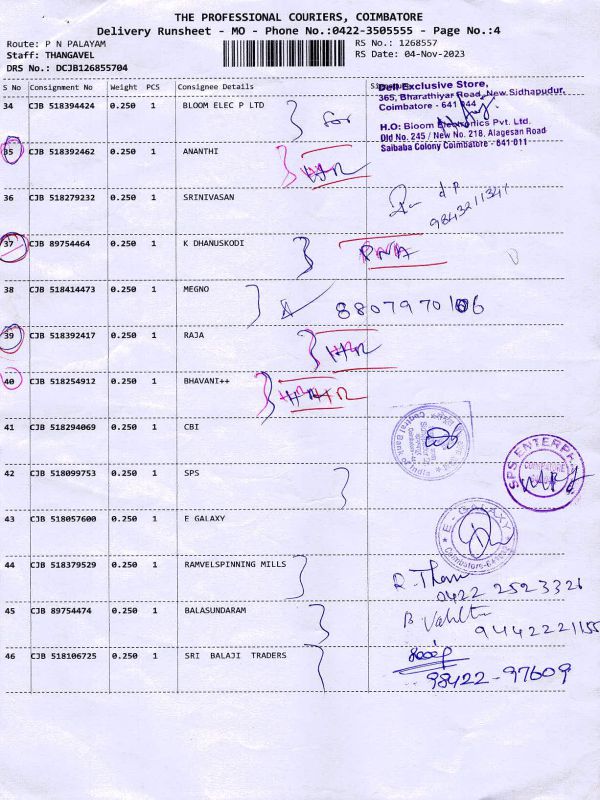 THE PROFESSIONAL COURIERS, COIMBATORE
Delivery Runsheet - MO - Phone No.:0422-3505555 - Page No.:4
Route: P N PALAYAM
RS No.: 1268557
Staff: THANGAVEL
RS Date: 04-Nov-2023
DRS No.: DCJB126855704
S No Consignment No Weight PCS Consignee Details
Dell Exclusive Store,
365, Bharathiyar Road, New Sidhapudur,
Coimbatore - 641 044
34 CJB 518394424 0.250 1 BLOOM ELEC P LTD for
H.O: Bloom Electronics Pvt. Ltd.
Old No. 245 / New No. 218, Alagesan Road
Saibaba Colony Coimbatore - 641 011
35 CJB 518392462 0.250 1 ANANTHI
36 CJB 518279232 0.250 1 SRINIVASAN
9843211341
37 CJB 89754464 0.250 1 K DHANUSKODI PNA
38 CJB 518414473 0.250 1 MEGNO 8807970106
39 CJB 518392417 0.250 1 RAJA
40 CJB 518254912 0.250 1 BHAVANI++
41 CJB 518294069 0.250 1 CBI
Central Bank of India
42 CJB 518099753 0.250 1 SPS
SPS ENTERPR
COIMBATORE
43 CJB 518057600 0.250 1 E GALAXY
E-GALAXY
Coimbatore-641
44 CJB 518379529 0.250 1 RAMVELSPINNING MILLS
0422 2523326
45 CJB 89754474 0.250 1 BALASUNDARAM
9442221155
46 CJB 518106725 0.250 1 SRI BALAJI TRADERS
98422-97609